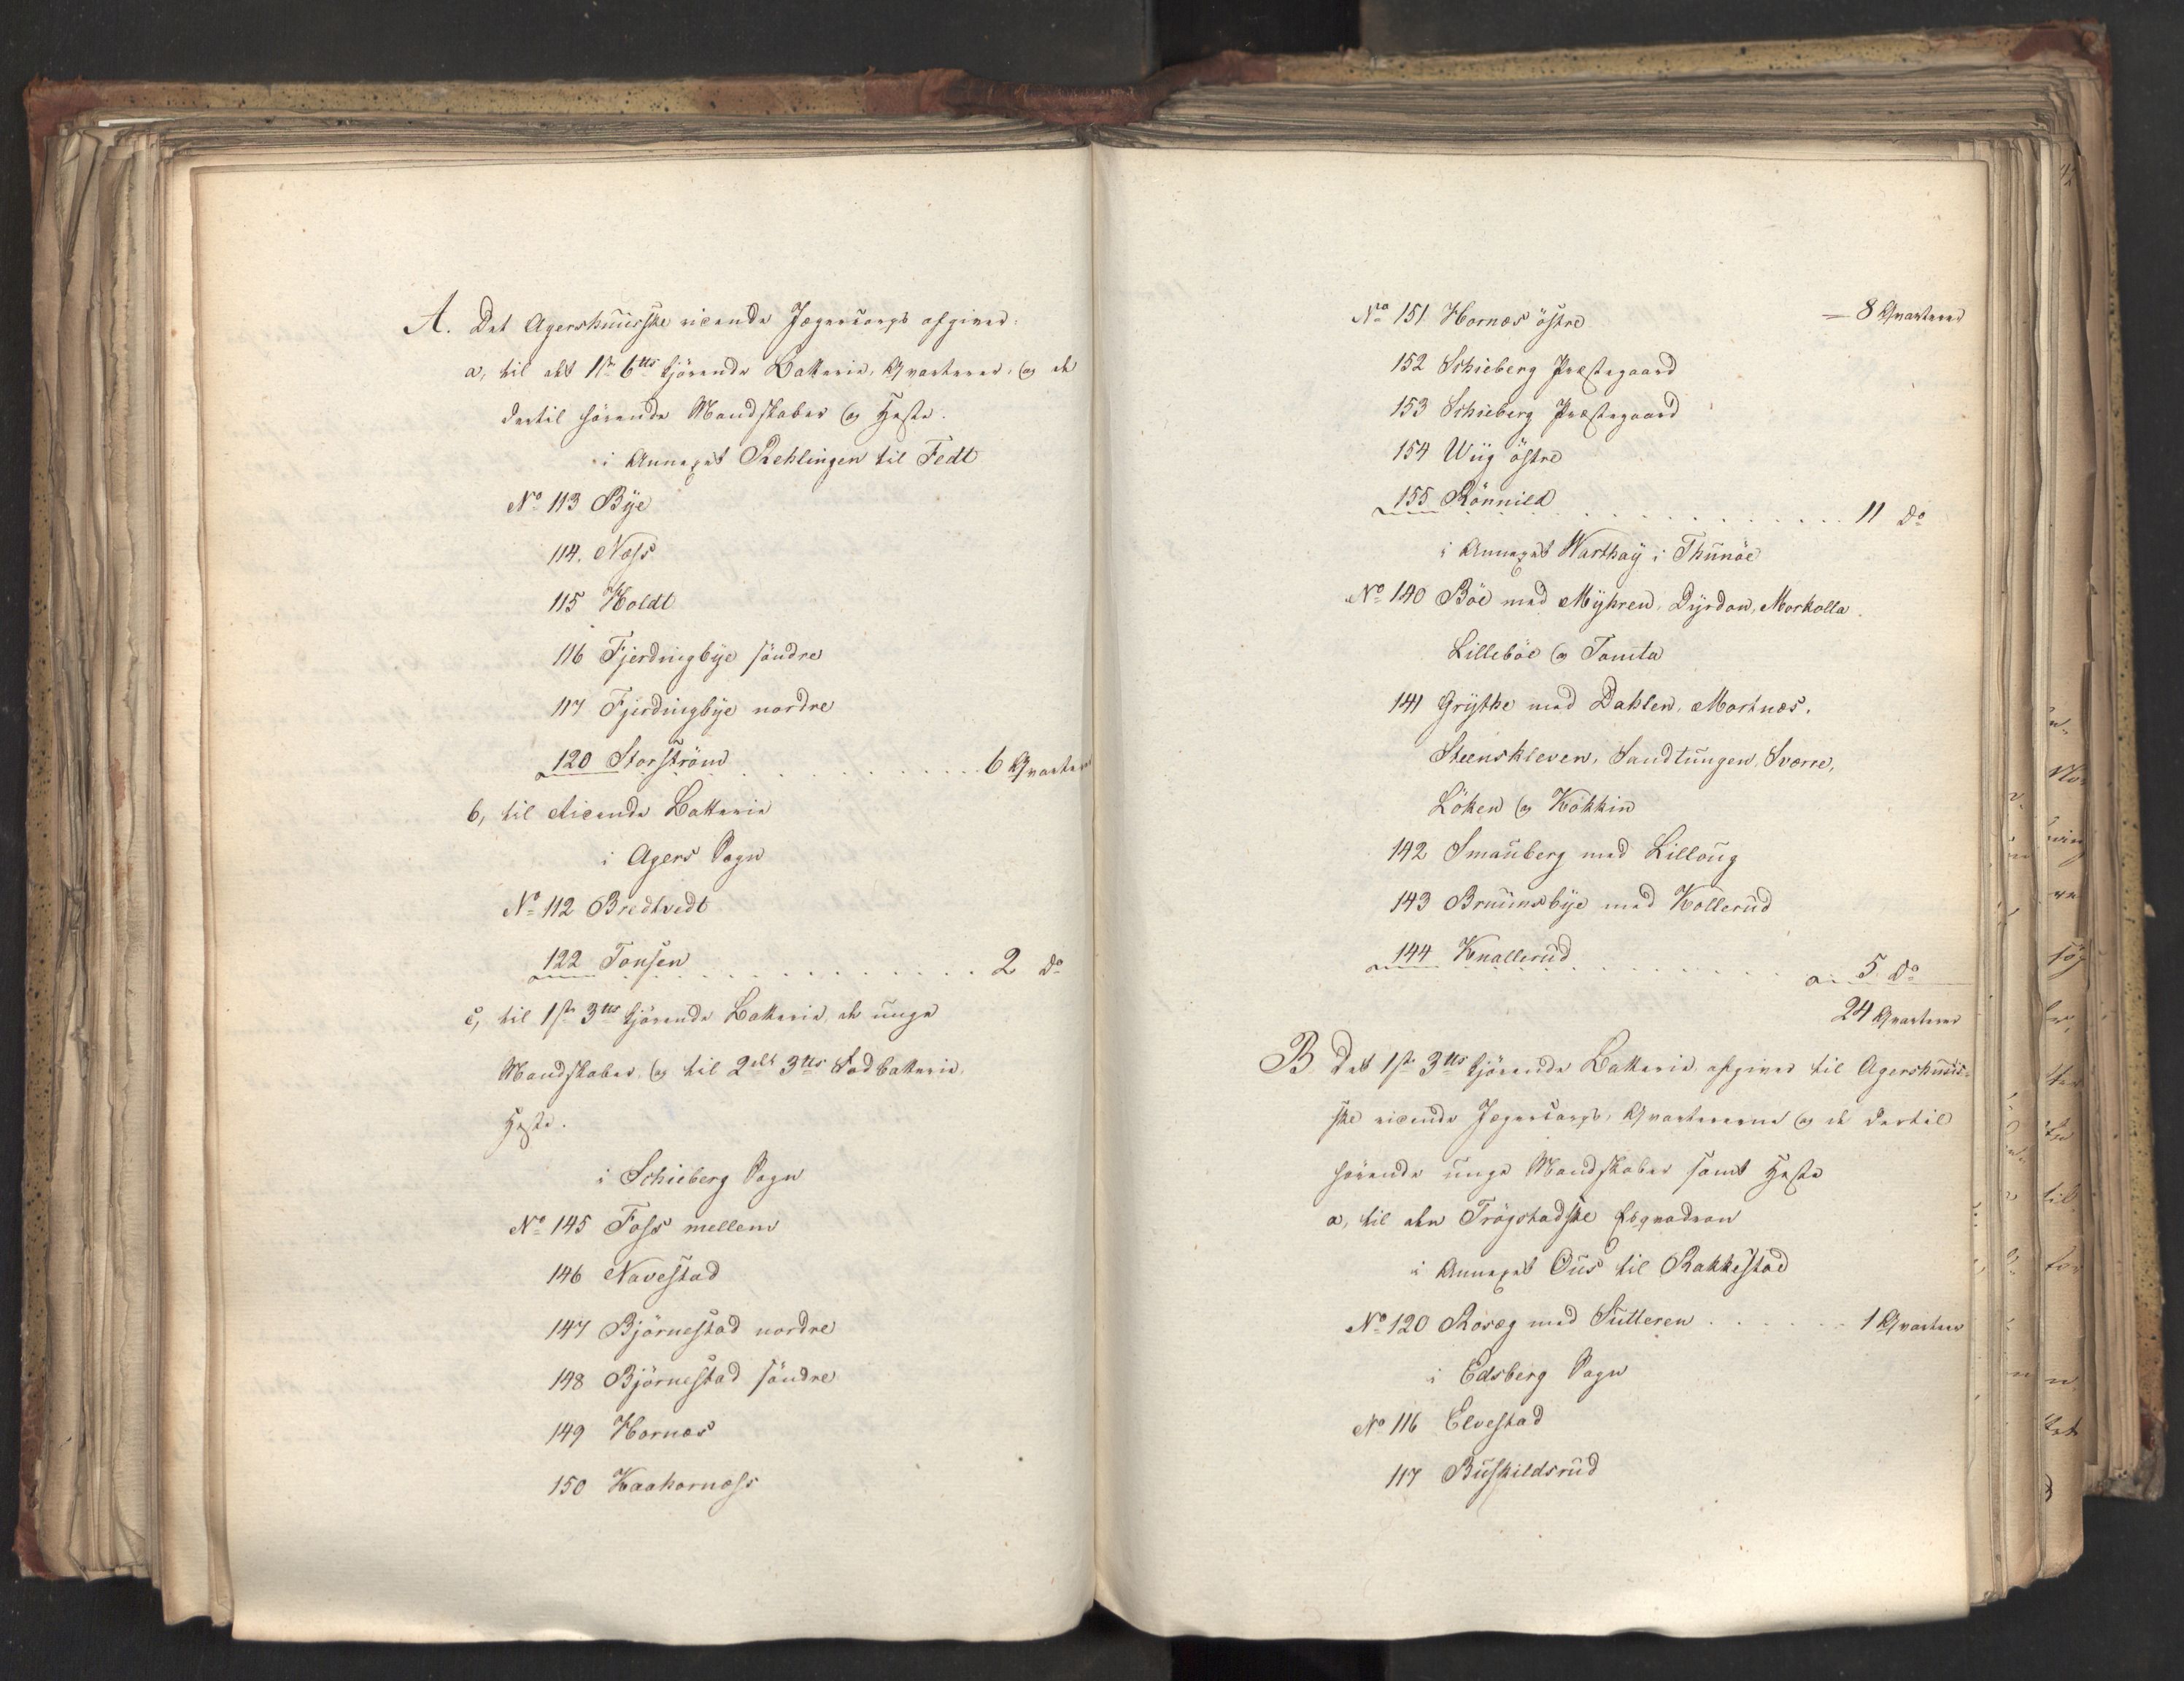 A. Det Agershuusske ridende Jægercorps afgiver:
a, til det 1ste 6tts kjörende Batterie, Qvarterer, og de
dertil hörende Mandskaber og Heste.
i Annexet Rehlingen til Fedt
No 113 Bÿe
114. Næss
115 Holdt
116 Fjerdingbÿe söndre
117 Fjerdingbÿe nordre
120 Storström . . . . . . . . . . . . 6 Qvarterer
b, til ridende Batterie
i Agers Sogn
No 112 Bredtvedt
122 Tonsen . . . . . . . . . . . . 2 do
c, til 1ste 3tts kjörende Batterie, de unge
Mandskaber, og til 2det 3tts Fodbatterie,
Heste.
i Schieberg Sogn
No 145 Foss mellem
146 Navestad
147 Björnestad nordre
148 Björnestad söndre
149 Hornæs
150 Kaahornæss
No 151 Hornæs östre — 8 Qvarterer
152 Schieberg Præstegaard
153 Schieberg Præstegaard
154 Wiig östre
155 Rönnild . . . . . . . . . . . . 11 do
i Annexet Warthaÿ i Thunöe
No 140 Böe med Mÿhren, Dÿrdon, Morkolla
Lilleböe og Tomta
141 Grÿthe med Dahlen, Mortnæs,
Steenskleven, Sandtungen, Sværre,
Löken og Kökkin
142 Smauberg med Lilloug
143 Bruunsbÿe med Kollerud
144 Knallerud . . . . . . . . . . . . 5 do
24 Qvarterer
B Det 1ste 3tts kjörende Batterie afgiver til Agershuus-
ske ridende Jægercorps, Qvartererne og de dertil
hörende unge Mandskaber samt Heste
a, til den Trögstadske Esqvadron
i Annexet Ous til Rakkestad
No 120 Rosæg med Sutteren . . . . . . 1 Qvarteer
i Edsberg Sogn
No 116 Elvestad
117 Buskildsrud